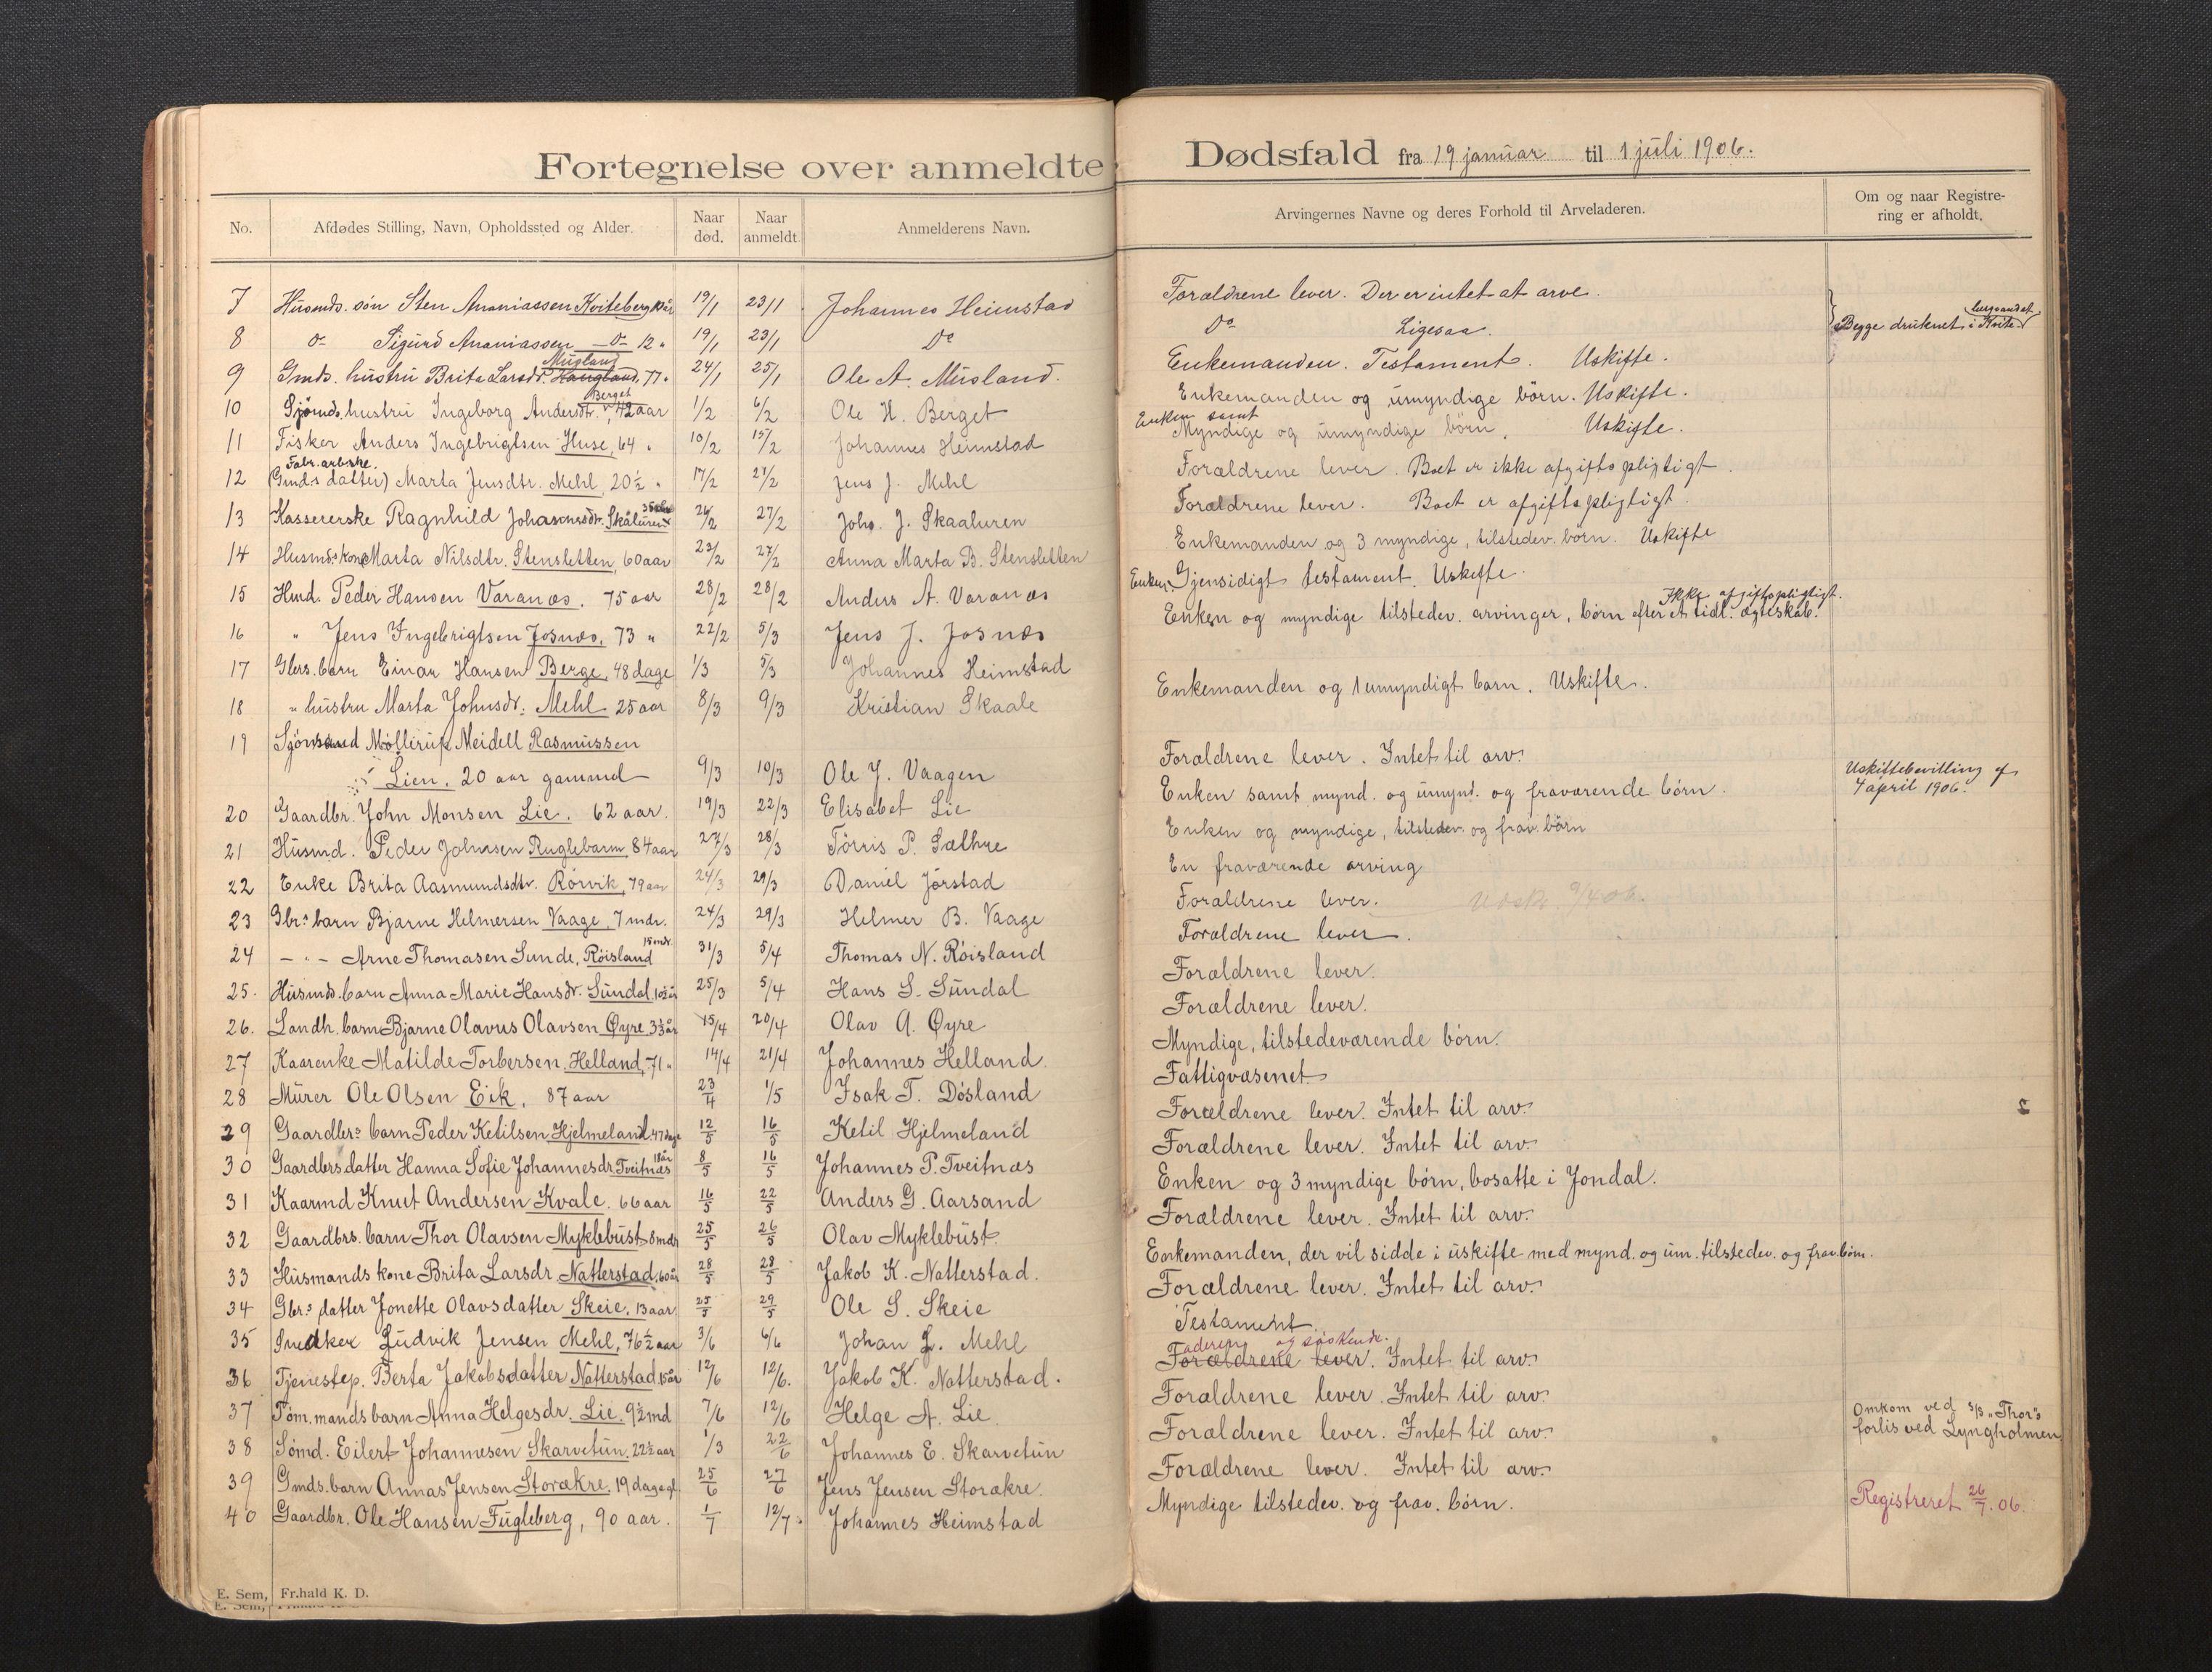 Fortegnelse over anmeldte Dødsfald fra 19 januar til 1 juli 1906.
No. Afdødes Stilling, Navn, Opholdssted og Alder. Naar død. Naar anmeldt Anmelderens Navn. Arvingernes Navne og deres Forhold til Arveladeren. Om og naar Registrering er afholdt.
7 Husmds. søn Sten Ananiassen Kviteberg 19/1 23/1 Johannes Heimstad Forældrene lever. Der er intet at arve.
8 do Sigurd Ananiassen —do— 12 " 19/1 23/1 Do Do Ligesaa. Begge druknet i Kvite
9 Gmds. hustru Brita Larsdt. Haugland, Musland 77 " 24/1 25/1 Ole A. Musland. Enkemanden. Testament. Uskifte.
10 Sjømds. hustru Ingeborg Andersdtr. Berget, 42 aar 1/2 6/2 Ole H. Berget Enkemanden og umyndige børn. Uskifte.
11 Fisker Anders Ingebrigtsen Huse, 64 " 10/2 15/2 Johannes Heimstad Enken samt Myndige og umyndige børn. Uskifte.
12 Fabr. arbske. (Gmds datter) Marta Jensdtr. Mehl, 20½ " 17/2 21/2 Jens J. Mehl Forældrene lever. Boet er ikke afgiftspligtigt.
13 Kassererske Ragnhild Johannesdr. Skåluren 26/2 27/2 Johs. J. Skaaluren Forældrene lever. Boet er afgiftspligtigt.
14 Husmds. kone Marta Nilsdtr. Stensletten, 60 aar 22/2 27/2 Anna Marta B. Stensletten Enkemanden og 3 myndige, tilstedev. børn. Uskifte
15 Husmd. Peder Hansen Varanes. 75 aar 28/2 28/2 Anders A. Varanes Enken. Gjensidigt testament. Uskifte.
16 " Jens Ingebrigtsen Josnæs, 73 " 22/2 5/3 Jens J. Josnæs Enken og myndige tilstedev. arvinger, børn efter et tidl. ægteskab. Ikke afgiftspligtigt.
17 Gbrs. barn Einar Hansen Berge, 48 dage 1/3 5/3 Johannes Heimstad
18 " hustru Marta Johnsdr. Mehl 25 aar 8/3 9/3 Kristian Skaale Enkemanden og 1 umyndigt barn. Uskifte.
19 Sjømand Møllerup Meidell Rasmussen
Lien. 20 aar gammel 9/3 10/3 Ole J. Vaagen Forældrene lever. Intet til arv.
20 Gaardbr. John Monsen Lie. 62 aar. 19/3 22/3 Elisabet Lie Enken samt mynd. og umynd. og fraværende børn. Uskiftebevilling af 4 april 1906.
21 Husmd. Peder Johnsen Ruglebarm 84 aar 27/3 28/3 Tørris P. Sæthre Enken og myndige, tilstedev. og frav. børn
22 Enke Brita Aasmundsdtr. Rørvik, 79 aar 24/3 29/3 Daniel Jørstad En fraværende arving
23 Gbrs. barn Bjarne Helmersen Vaage, 7 mdr. 24/3 29/3 Helmer B. Vaage Forældrene lever. Udsk. 9/4 06.
24 — " — Arne Thomasen Sunde, Røisland 15 mdr. 31/3 5/4 Thomas N. Røisland Forældrene lever.
25. Husmds. barn Anna Marie Hansdr. Sundal, 25/3 5/4 Hans S. Sundal Forældrene lever.
26. Landh. barn Bjarne Olavus Olavsen Øyre 15/4 20/4 Olav A. Øyre Forældrene lever.
27 Kaarenke Matilde Torbersen Helland, 71 " 14/4 21/4 Johannes Helland. Myndige, tilstedeværende børn.
28 Murer Ole Olsen Eik, 87 aar 23/4 1/5 Isak T. Døsland Fattigvæsenet.
29 Gaardbrs barn Peder Ketilsen Hjelmeland, 47 dage 12/5 16/5 Ketil Hjelmeland Forældrene lever. Intet til arv.
30 Gaardbrs. datter Hanna Sofie Johannesdr. Tveitnæs 18 år 8/5 16/5 Johannes P. Tveitnæs Forældrene lever. Intet til arv.
31 Kaarmd Knut Andersen Kvale. 66 aar 16/5 22/5 Anders G. Aarsand Enken og 3 myndige børn, bosatte i Jondal.
32 Gaardbrs. barn Thor Olavsen Myklebust 8 mdr 25/5 26/5 Olav Myklebust. Forældrene lever. Intet til arv.
33 Husmands kone Brita Larsdr. Natterstad, 60 år 28/5 28/5 Jakob K. Natterstad. Enkemanden, der vil sidde i uskifte med mynd. og um. tilstedev. og frav. børn.
34 Gbrs datter Jonette Olavsdatter Skeie, 13 aar 25/5 29/5 Ole S. Skeie Forældrene lever. Intet til arv.
35 Snedker Ludvik Jensen Mehl, 76½ aar 3/6 6/6 Johan L. Mehl Testament.
36 Tjenestep. Berta Jakobsdatter Natterstad 15 år 12/6 12/6. Jakob K. Natterstad. Forældrene lever. Faderen og søskende. Intet til arv.
37 Tøm.mands barn Anna Helgesdr. Lie. 9½ md 7/6 12/6 Helge A. Lie. Forældrene lever. Intet til arv.
38 Sømd. Eilert Johannesen Skarvetun. 22½ aar 1/3 22/6 Johannes E. Skarvetun Forældrene lever. Intet til arv. Omkom ved s/s "Thor"s forlis ved Lyngholmen.
39 Gmds. barn Annas Jensen Storækre. 19 dage gl. 25/6 27/6 Jens Jensen Storækre. Forældrene lever. Intet til arv.
40 Gaardbr. Ole Hansen Fugleberg, 90 aar. 1/7 12/7. Johannes Heimstad Myndige tilstedev. og frav. børn. Registreret 26/7. 06.
E. Sem, Fr.hald K. D.